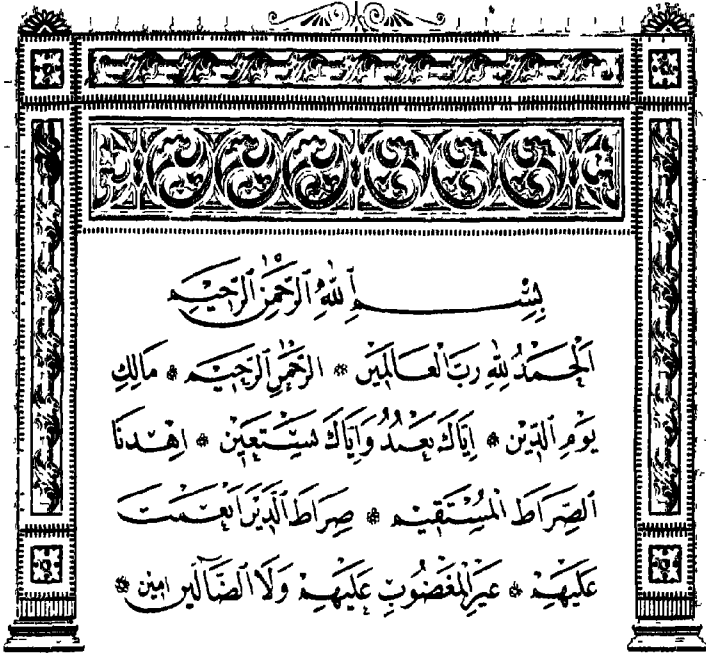 بِسْمِ اللهِ الرَّحْمٰنِ الرَّحِيمِ
اَلْحَمْدُ لِلّٰهِ رَبِّ الْعَالَمِينَ * الرَّحْمٰنِ الرَّحِيمِ * مَالِكِ
يَوْمِ الدِّينِ * اِيَّاكَ نَعْبُدُ وَاِيَّاكَ نَسْتَعِينُ * اِهْدِنَا
الصِّرَاطَ الْمُسْتَقِيمَ * صِرَاطَ الَّذِينَ اَنْعَمْتَ
عَلَيْهِمْ * غَيْرِ الْمَغْضُوبِ عَلَيْهِمْ وَلَا الضَّالِّينَ امين *